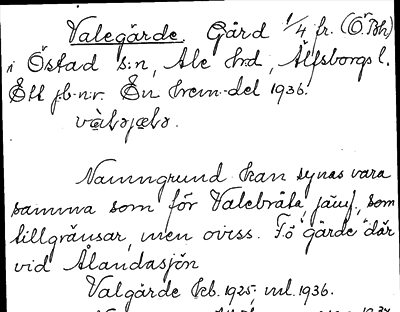 Valegärde. Gård 1/4 fr. (Ö. Bh)
i Östad s:n, Ale hrd, Älfsborgs l.
Ett jb-n:r. En hem-del 1936.
Namngrund kan synas vara
samma som för Valebråta, jämf., som
tillgränsar, men oviss. Fö gärde där
vid Ålandasjön
Valgärde kb. 1925, ml. 1936.